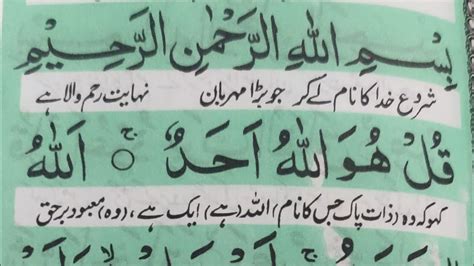 بِسْمِ اللهِ الرَّحْمٰنِ الرَّحِيْمِ
شروع خدا کا نام لے کر جو بڑا مہربان نہایت رحم والا ہے
قُلْ هُوَ اللهُ اَحَدٌ ۚ○ اَللهُ
کہو کہ وہ (ذات پاک جس کا نام) اللہ (ہے) ایک ہے ، (وہ) معبود برحق